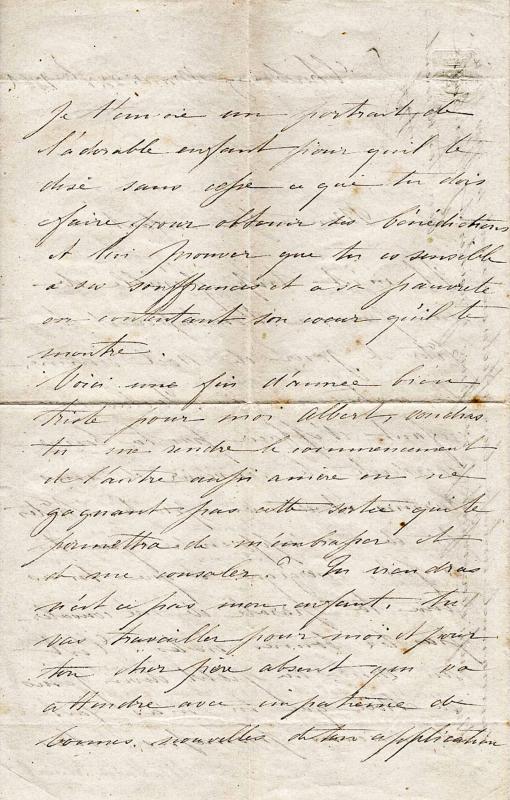 Je t'envoie un portrait de
l'adorable enfant pour qu'il te
dise sans cesse ce que tu dois
faire pour obtenir ses bénédictions
et lui prouver que tu es sensible
à ses souffrances et à sa pauvreté
en contentant son coeur qu'il te
montre.
Voici une fin d'année bien
triste pour moi Albert, voudras
tu me rendre le commencement
de l'autre aussi amère en ne
gagnant pas cette sortie qui te
permettra de m'embrasser et
et me consoler ? Tu viendras
n'est ce pas mon enfant, tu
vas travailler pour moi et pour
ton cher père absent qui va
attendre avec impatience de
bonnes nouvelles de ton application